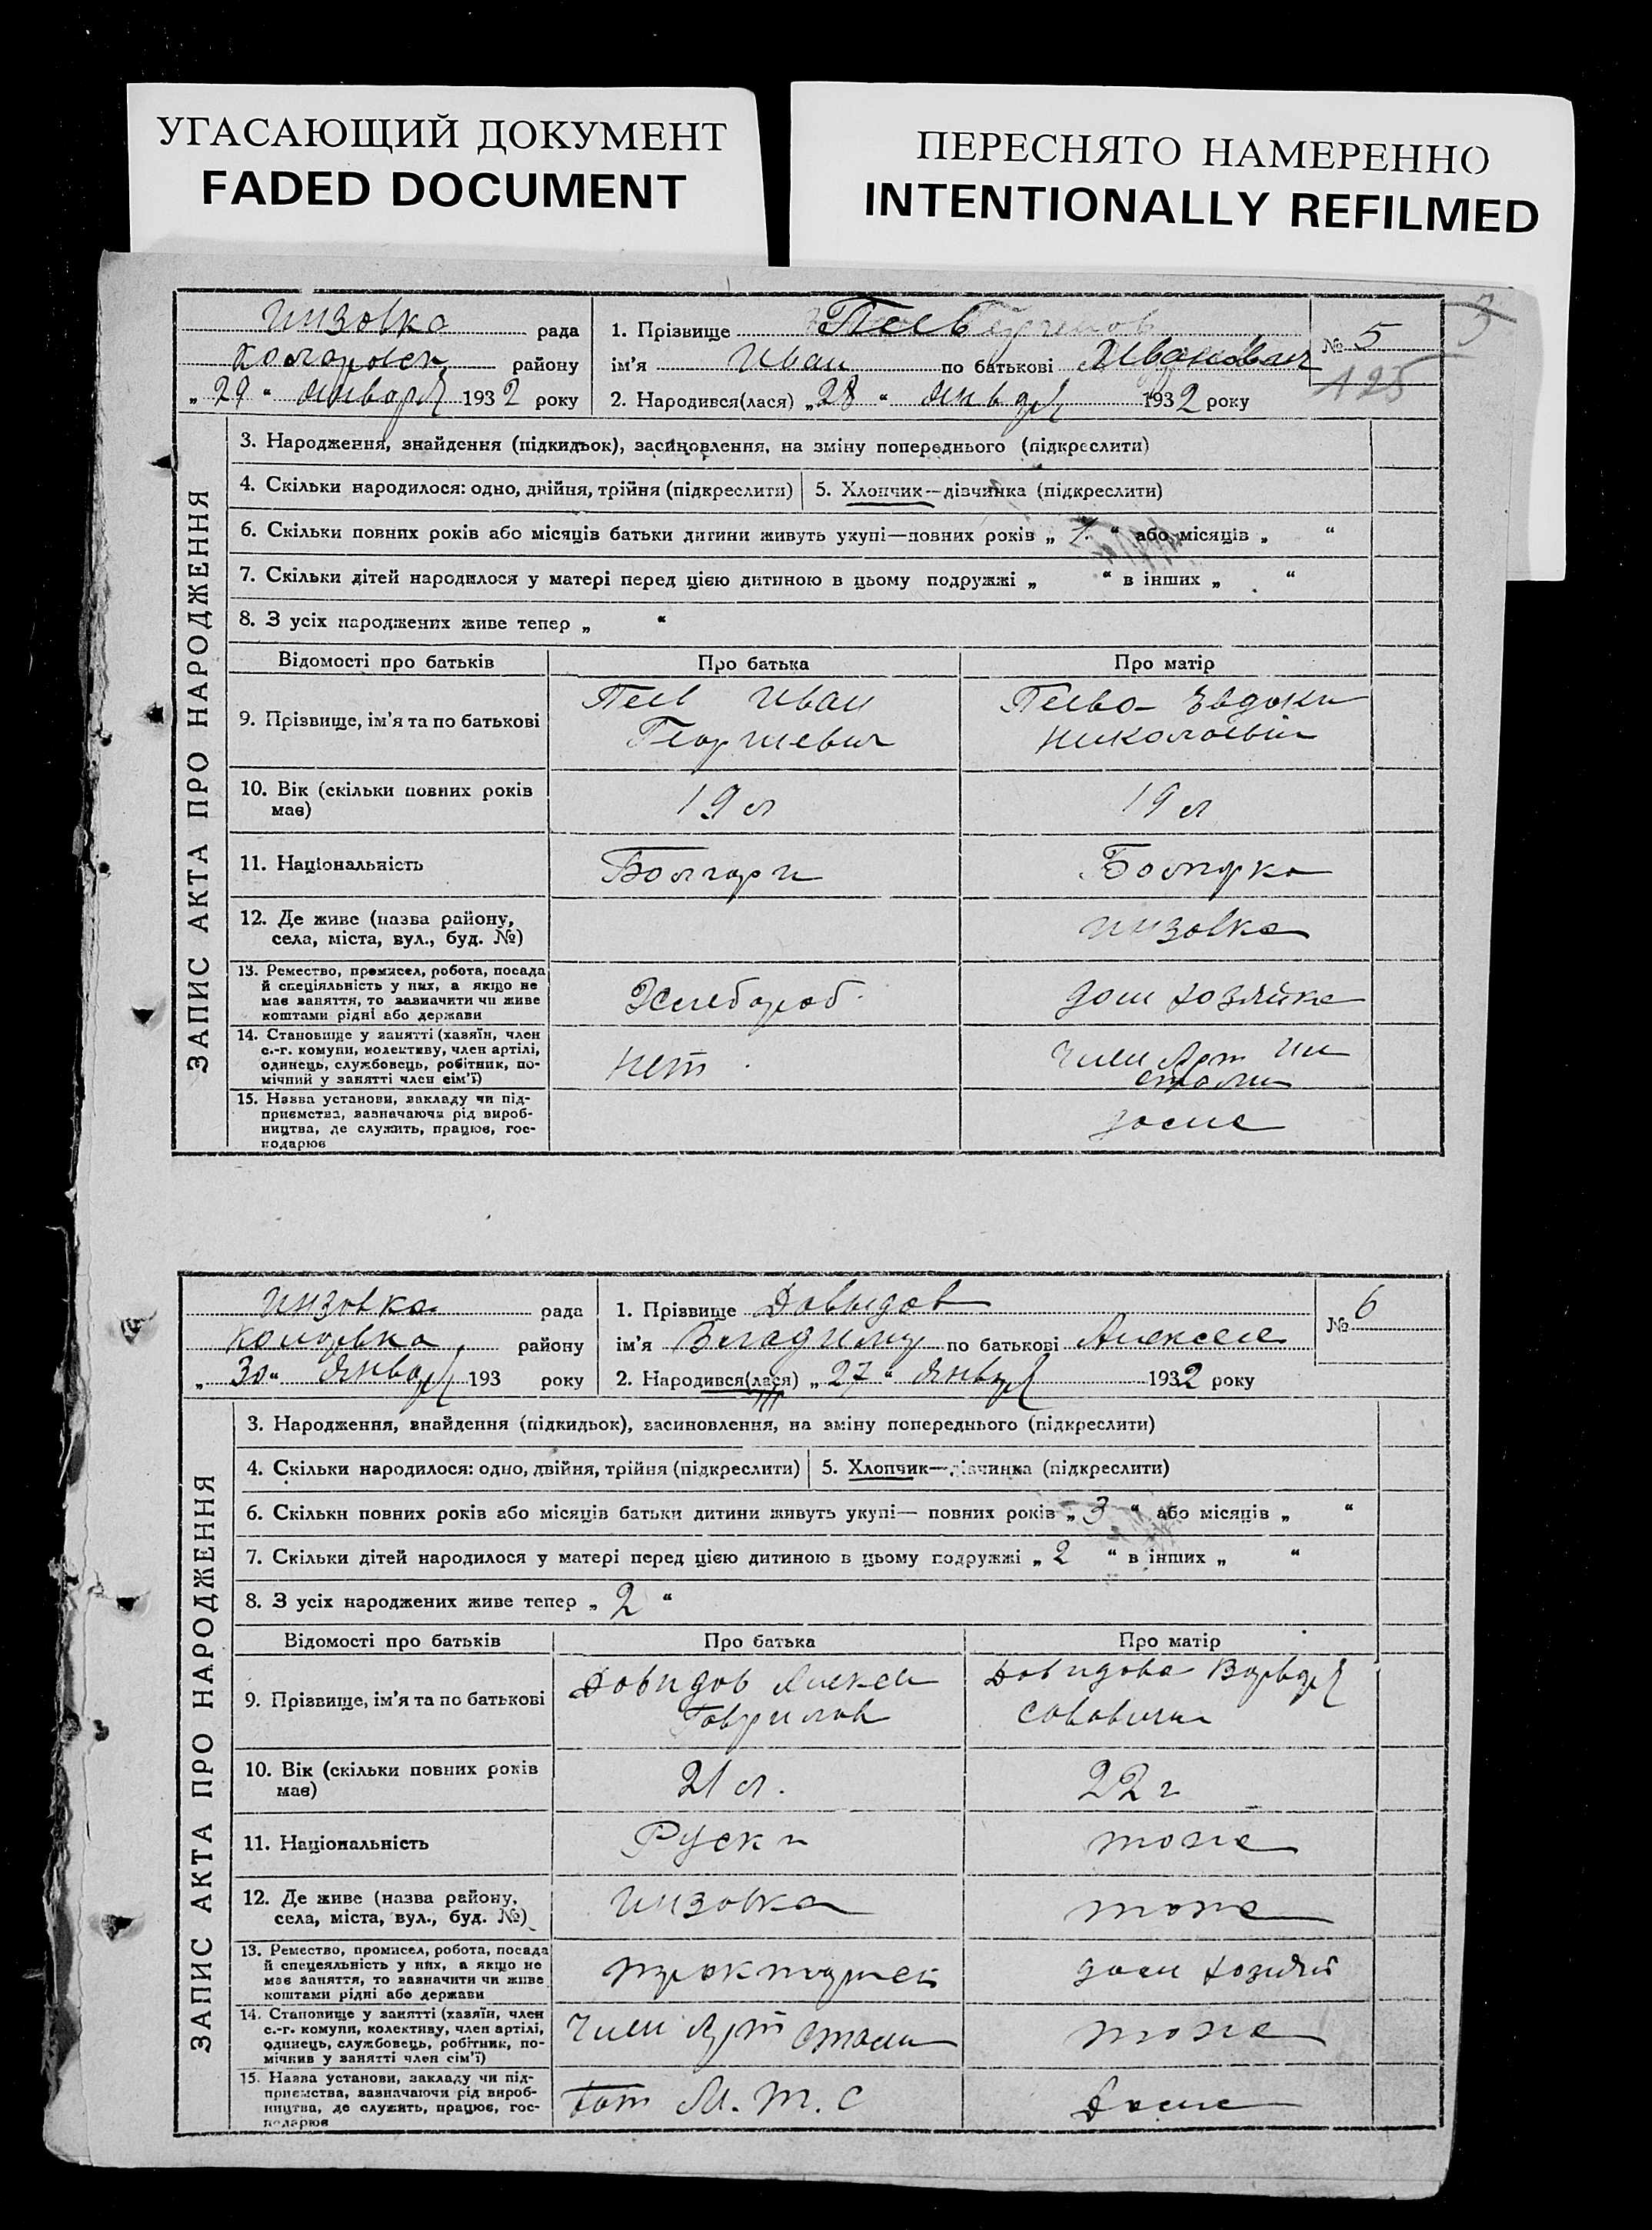 УГАСАЮЩИЙ ДОКУМЕНТ
FADED DOCUMENT
ПЕРЕСНЯТО НАМЕРЕННО
INTENTIONALLY REFILMED
3
ЗАПИС АКТА ПРО НАРОДЖЕННЯ
Инзовка рада
району
„29“ января 1932 року
1. Прізвище Пеев
ім'я Иван по батькові Иванович
2. Народився(лася) „28“ января 1932 року
№ 5
125
3. Народження, знайдення (підкидьок), засиновлення, на зміну попереднього (підкреслити)
4. Скільки народилося: одно, двійня, трійня (підкреслити) 5. Хлопчик—дівчинка (підкреслити)
6. Скільки повних років або місяців батьки дитини живуть укупі—повних років „1“ або місяців „ “
7. Скільки дітей народилося у матері перед цією дитиною в цьому подружжі „ “ в інших „ “
8. З усіх народжених живе тепер „ “
Відомості про батьків Про батька Про матір
9. Прізвище, ім'я та по батькові Пеев Иван Георгиевич Пеева Евдоки Николаевн
10. Вік (скільки повних років має) 19 л 19 л
11. Національність Болгари Болгарка
12. Де живе (назва району, села, міста, вул., буд. №) Инзовка
13. Ремество, промисел, робота, посада й спеціяльність у них, а якщо не має заняття, то зазначити чи живе коштами рідні або держави Хлебороб. дом хозяйка
14. Становище у занятті (хазяїн, член с.-г. комуни, колективу, член артілі, одинець, службовець, робітник, помічний у занятті член сім'ї) нет. Член Арт им Стали
15. Назва установи, закладу чи підприємства, зазначаючи рід виробництва, де служить, працює, господарює доме
ЗАПИС АКТА ПРО НАРОДЖЕННЯ
Инзовка рада
району
„30“ январ 193 року
1. Прізвище Давидов
ім'я Владимир по батькові Алексее
2. Народився(лася) „27“ январ 1932 року
№ 6
3. Народження, знайдення (підкидьок), засиновлення, на зміну попереднього (підкреслити)
4. Скільки народилося: одно, двійня, трійня (підкреслити) 5. Хлопчик—дівчинка (підкреслити)
6. Скільки повних років або місяців батьки дитини живуть укупі— повних років „3“ або місяців „ “
7. Скільки дітей народилося у матері перед цією дитиною в цьому подружжі „2“ в інших „ “
8. З усіх народжених живе тепер „2“
Відомості про батьків Про батька Про матір
9. Прізвище, ім'я та по батькові Давидов Алексей Гаврилов Давидова Варвар
10. Вік (скільки повних років має) 21 л. 22 г
11. Національність Руски тоже
12. Де живе (назва району, села, міста, вул., буд. №) Инзовка тоже
13. Ремество, промисел, робота, посада й спецеяльність у них, а якщо не має заняття, то зазначити чи живе коштами рідні або держави дом хозяй
14. Становище у занятті (хазяїн, член с.-г. комуни, колективу, член артілі, одинець, службовець, робітник, помічнив у занятті член сім'ї) Член Арт Стали тоже
15. Назва установи, закладу чи підприємства, зазначаючи рід виробництва, де служить, працює, господарює М.Т.С Доме